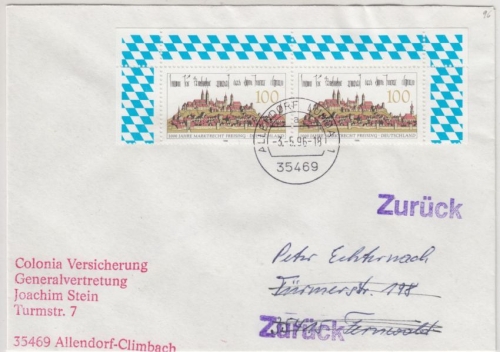 100
100
1000 JAHRE MARKTRECHT FREISING
DEUTSCHLAND
1000 JAHRE MARKTRECHT FREISING
DEUTSCHLAND
ALLENDORF
-3.5.96-18
35469
Zurück
Peter Echternach
Colonia Versicherung
Generalvertretung
Joachim Stein
Turmstr. 7
35469 Allendorf-Climbach
Zurück
Fernwald